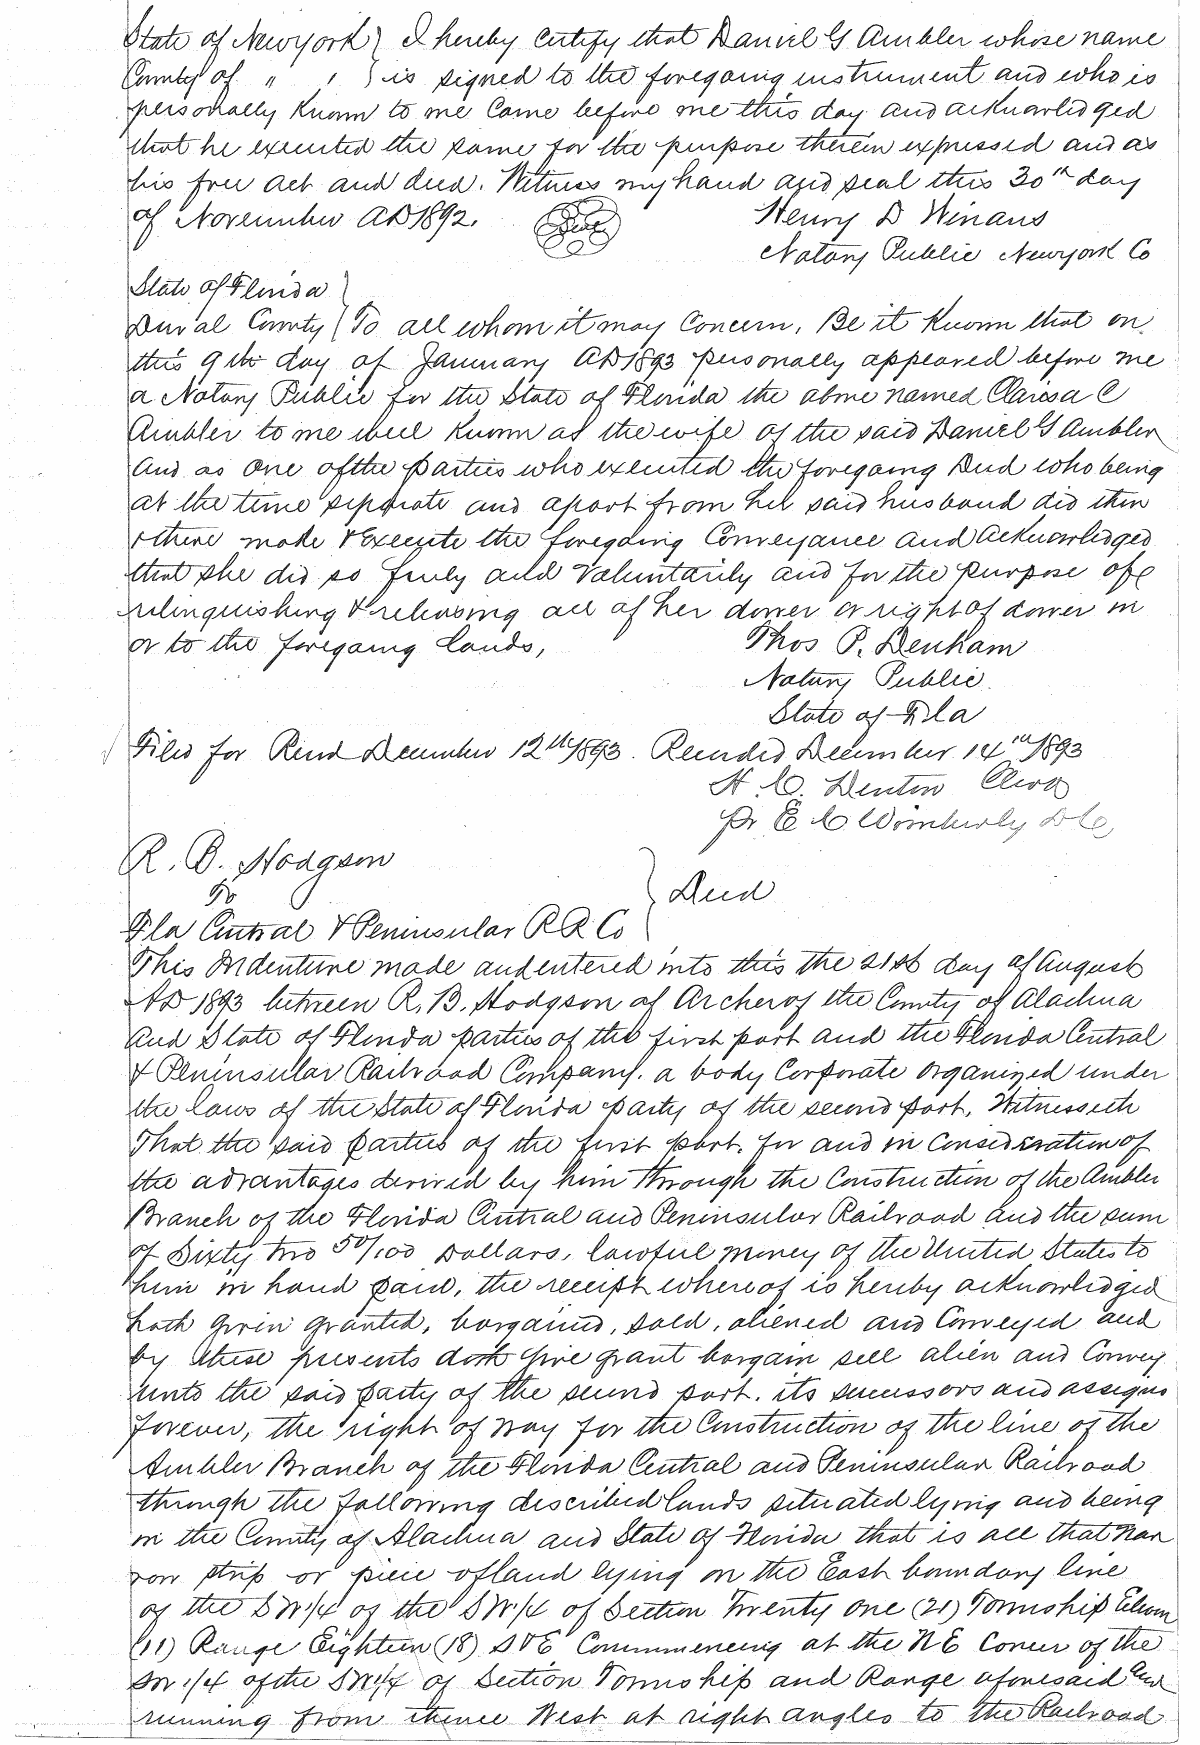 State of Newyork } I hereby Certify that Daniel G Ambler whose name
County of " " } is signed to the foregoing instrument and who is
personally Known to me Came before me this day and acknowledged
that he executed the same for the purpose therein expressed and as
his free act and deed. Witness my hand and seal this 30th day
of November AD 1892. Seal Henry D Winans
Notary Public Newyork Co
State of Florida }
Duval County } To all whom it may Concern, Be it Known that on
this 9th day of January AD 1893 personally appeared before me
a Notary Public for the State of Florida the above named Clarisa C
Ambler to me well Known as the wife of the said Daniel G Ambler
and as one of the parties who executed the foregoing Deed who being
at the time separate and apart from her said husband did then
& there made & Execute the foregoing Conveyance and acknowledged
that she did so freely and Voluntarily and for the purpose of
relinquishing & releasing all of her dower or right of dower in
or to the foregoing lands,
Thos P. Denham
Notary Public.
State of Fla
Filed for Record December 12th 1893. Recorded December 14th 1893
H. C. Denton Clerk
pr E C Wimberly D C,
R. B. Hodgson
To } Deed
Fla Central & Peninsular R R Co
This Indenture made and entered into this the 21st day of August
AD 1893 between R. B. Hodgson of Archer of the County of Alachua
and State of Florida parties of the first part and the Florida Central
& Peninsular Railroad Company. a body Corporate organized under
the laws of the State of Florida party of the second part, Witnesseth
That the said parties of the first part. for and in Consideration of
the advantages derived by him through the Construction of the Ambler
Branch of the Florida Central and Peninsular Railroad and the sum
of Sixty two 50/100 Dollars, lawful money of the United States to
him in hand paid, the receipt whereof is hereby acknowledged
hath given granted, bargained, sold, aliened and Conveyed and
by these presents doth give grant bargain sell alien and Convey
unto the said party of the second part. its successors and assigns
forever, the right of way for the Construction of the line of the
Ambler Branch of the Florida Central and Peninsular Railroad
through the following described lands situated lying and being
in the County of Alachua and State of Florida that is all that nar
row strip or piece of land lying on the East boundary line
of the SW 1/4 of the SW 1/4 of Section Twenty one (21) Township Eleven
(11) Range Eighteen (18) S & E Commencing at the NE Corner of the
SW 1/4 of the SW 1/4 of Section Township and Range aforesaid and
running from thence West at right angles to the Railroad